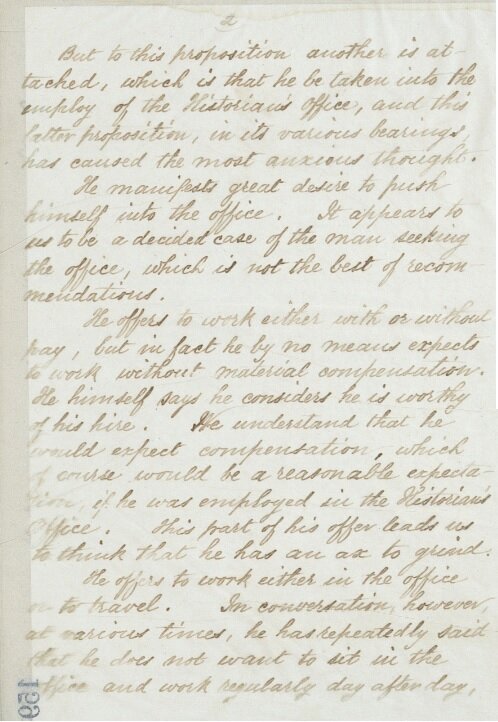 2
But to this proposition another is at-
tached, which is that he be taken into the
employ of the Historian's Office, and this
latter proposition, in its various bearings,
has caused the most anxious thought.
He manifests great desire to push
himself into the office. It appears to
us to be a decided case of the man seeking
the office, which is not the best of recom-
mendations.
He offers to work either with or without
pay, but in fact he by no means expects
to work without material compensation.
He himself says he considers he is worthy
of his hire. We understand that he
would expect compensation, which
of course would be a reasonable expecta-
tion, if he was employed in the Historian's
Office. This part of his offer leads us
to think that he has an ax to grind.
He offers to work either in the office
or to travel. In conversation, however,
at various times, he has repeatedly said
that he does not want to sit in the
office and work regularly day after day,